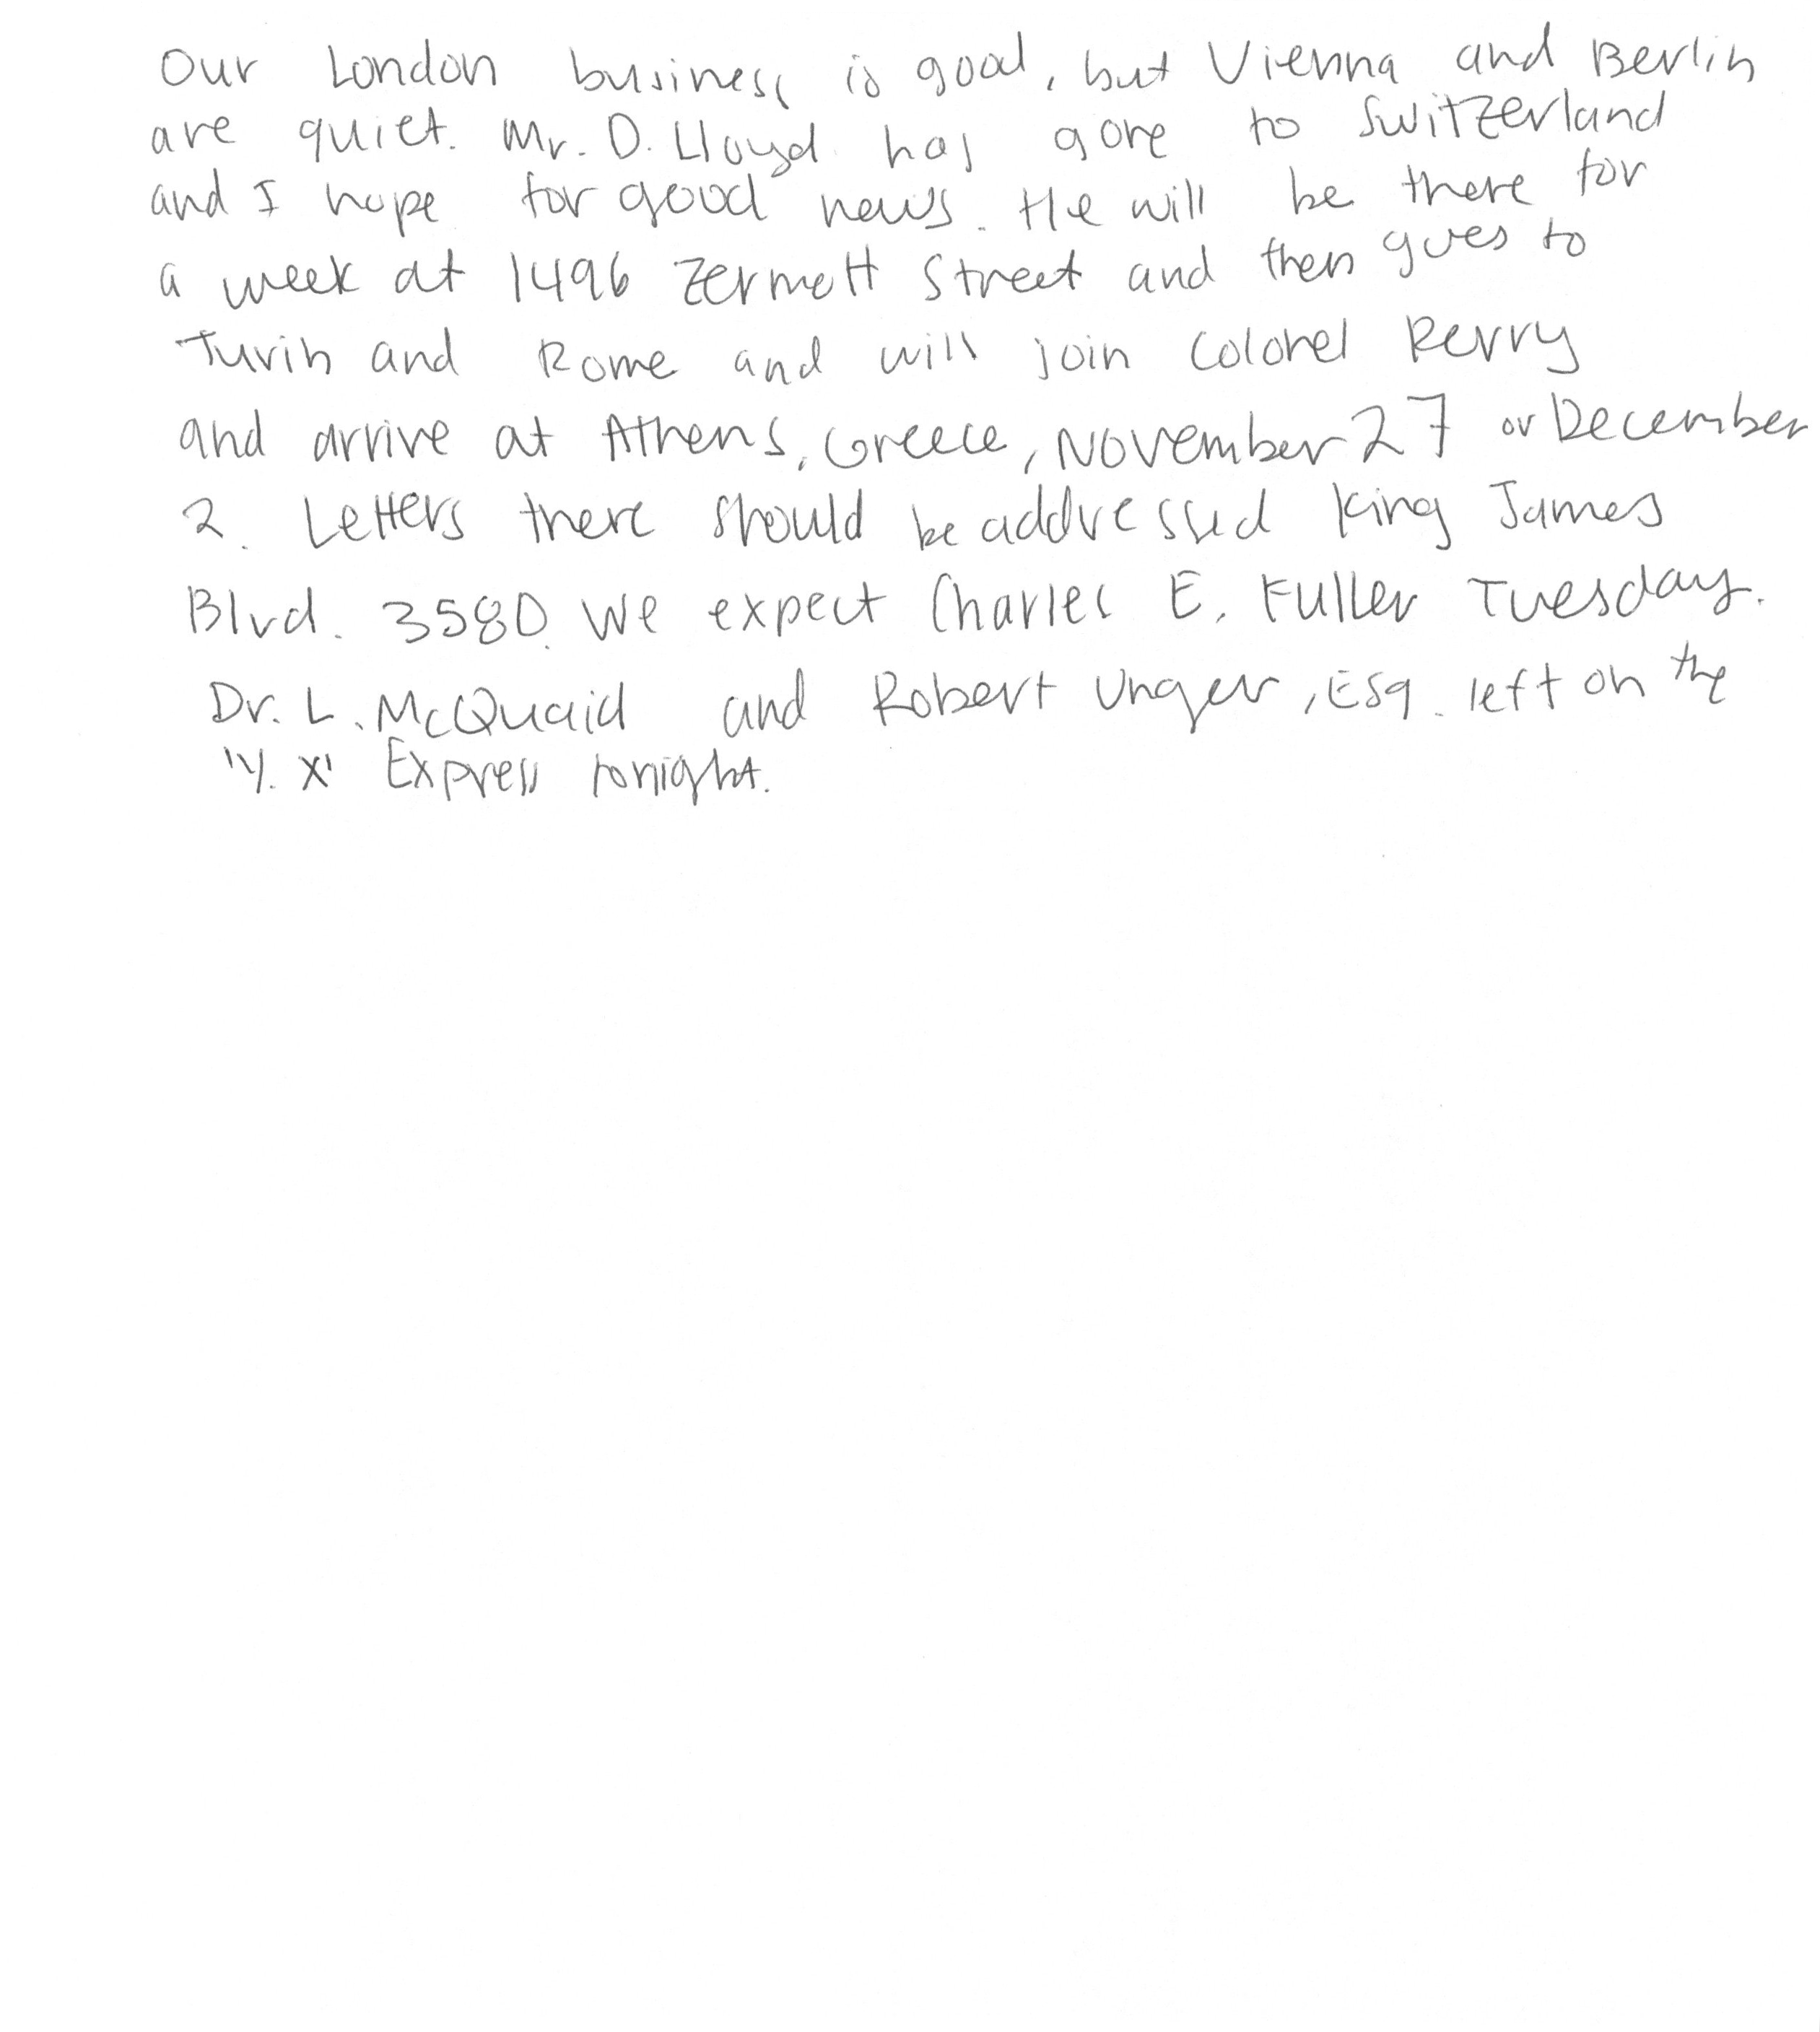 Our London business is good, but Vienna and Berlin
are quiet. Mr. D. Lloyd has gone to Switzerland
and I hope for good news. He will be there for
a week at 1496 Zermott Street and then goes to
Turin and Rome and will join Colonel Perry
and arrive at Athens, Greece, November 27 or December
2. Letters there should be addressed King James
Blvd. 3580. We expect Charles E. Fuller Tuesday.
Dr. L. McQuaid and Robert Unger, Esq. left on the
'Y. X' Express tonight.